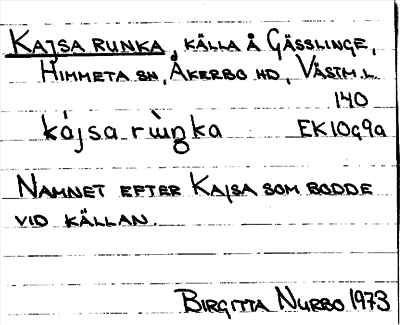 KAJSA RUNKA, KÄLLA Å GÄSSLINGE,
HIMMETA SN, ÅKERBO HD, VÄSTM.L.
140
kájsa rùŋka EK10G9a
NAMNET EFTER KAJSA SOM BODDE
VID KÄLLAN.
BIRGITTA NURBO 1973